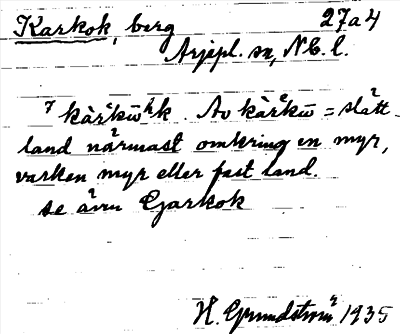 Karkok, berg 27a4
Arjepl. sn, Nb. l.
kàr̀kūʰk. Av kàr̀kū = slätt-
land närmast omkring en myr,
varken myr eller fast land.
se även Gjarkok
H. Grundström 1935